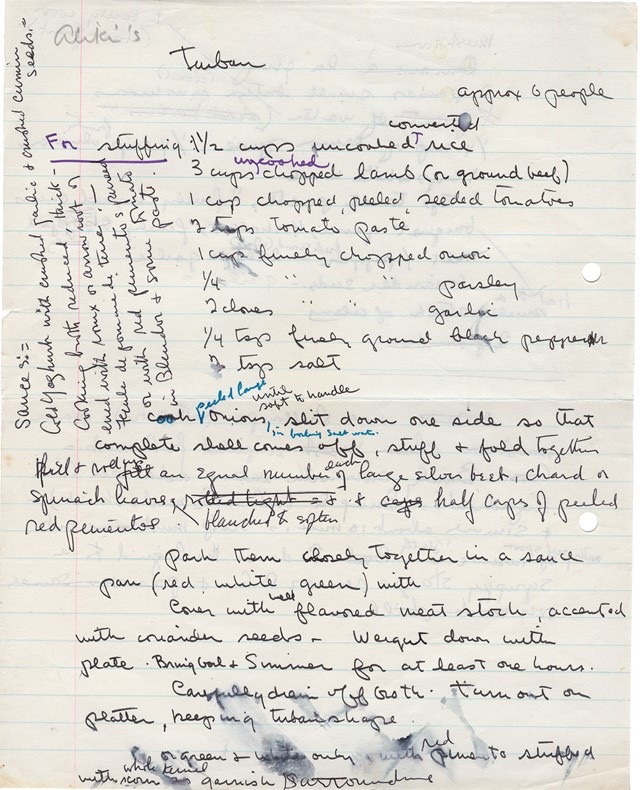 Aliki's
Turban
approx 6 people
converted
For stuffing 1½ cups uncooked rice
uncooked
3 cups chopped lamb (or ground beef)
1 cup chopped, peeled, seeded tomatoes
2 tsps tomato paste
1 cup finely chopped onion
1/4 " " " parsley
2 cloves garlic
1/4 tsps finely ground black pepper
2 tsps salt
peeled large until
soft to handle
cook onions, slit down one side so that
in boiling salt water
complete shell comes off, stuff & fold together
fill & roll an equal number of large silver beet, chard or
each
spinach leaves, rolled tight & caps half caps of peeled
red pementos blanched & soften
pack them closely together in a sauce
pan (red white green) with
Cover with well flavored meat stock, accented
with coriander seeds - Weight down with
plate. Bring boil & Simmer for at least one hours.
Carefully drain off broth. Turn out on
platter, keeping turban shape.
or green & white only & with red pimento stuffed
with whole kernel corn as garnish surrounding
Sauces:=
Cold Yoghurt with crushed garlic & crushed cumin seeds.-
Cooking broth reduced, thick-
ened with roux or arrow root or
fecule de pomme de terre.-
or with red pemento's pureed
in Blendor & some tomato paste.